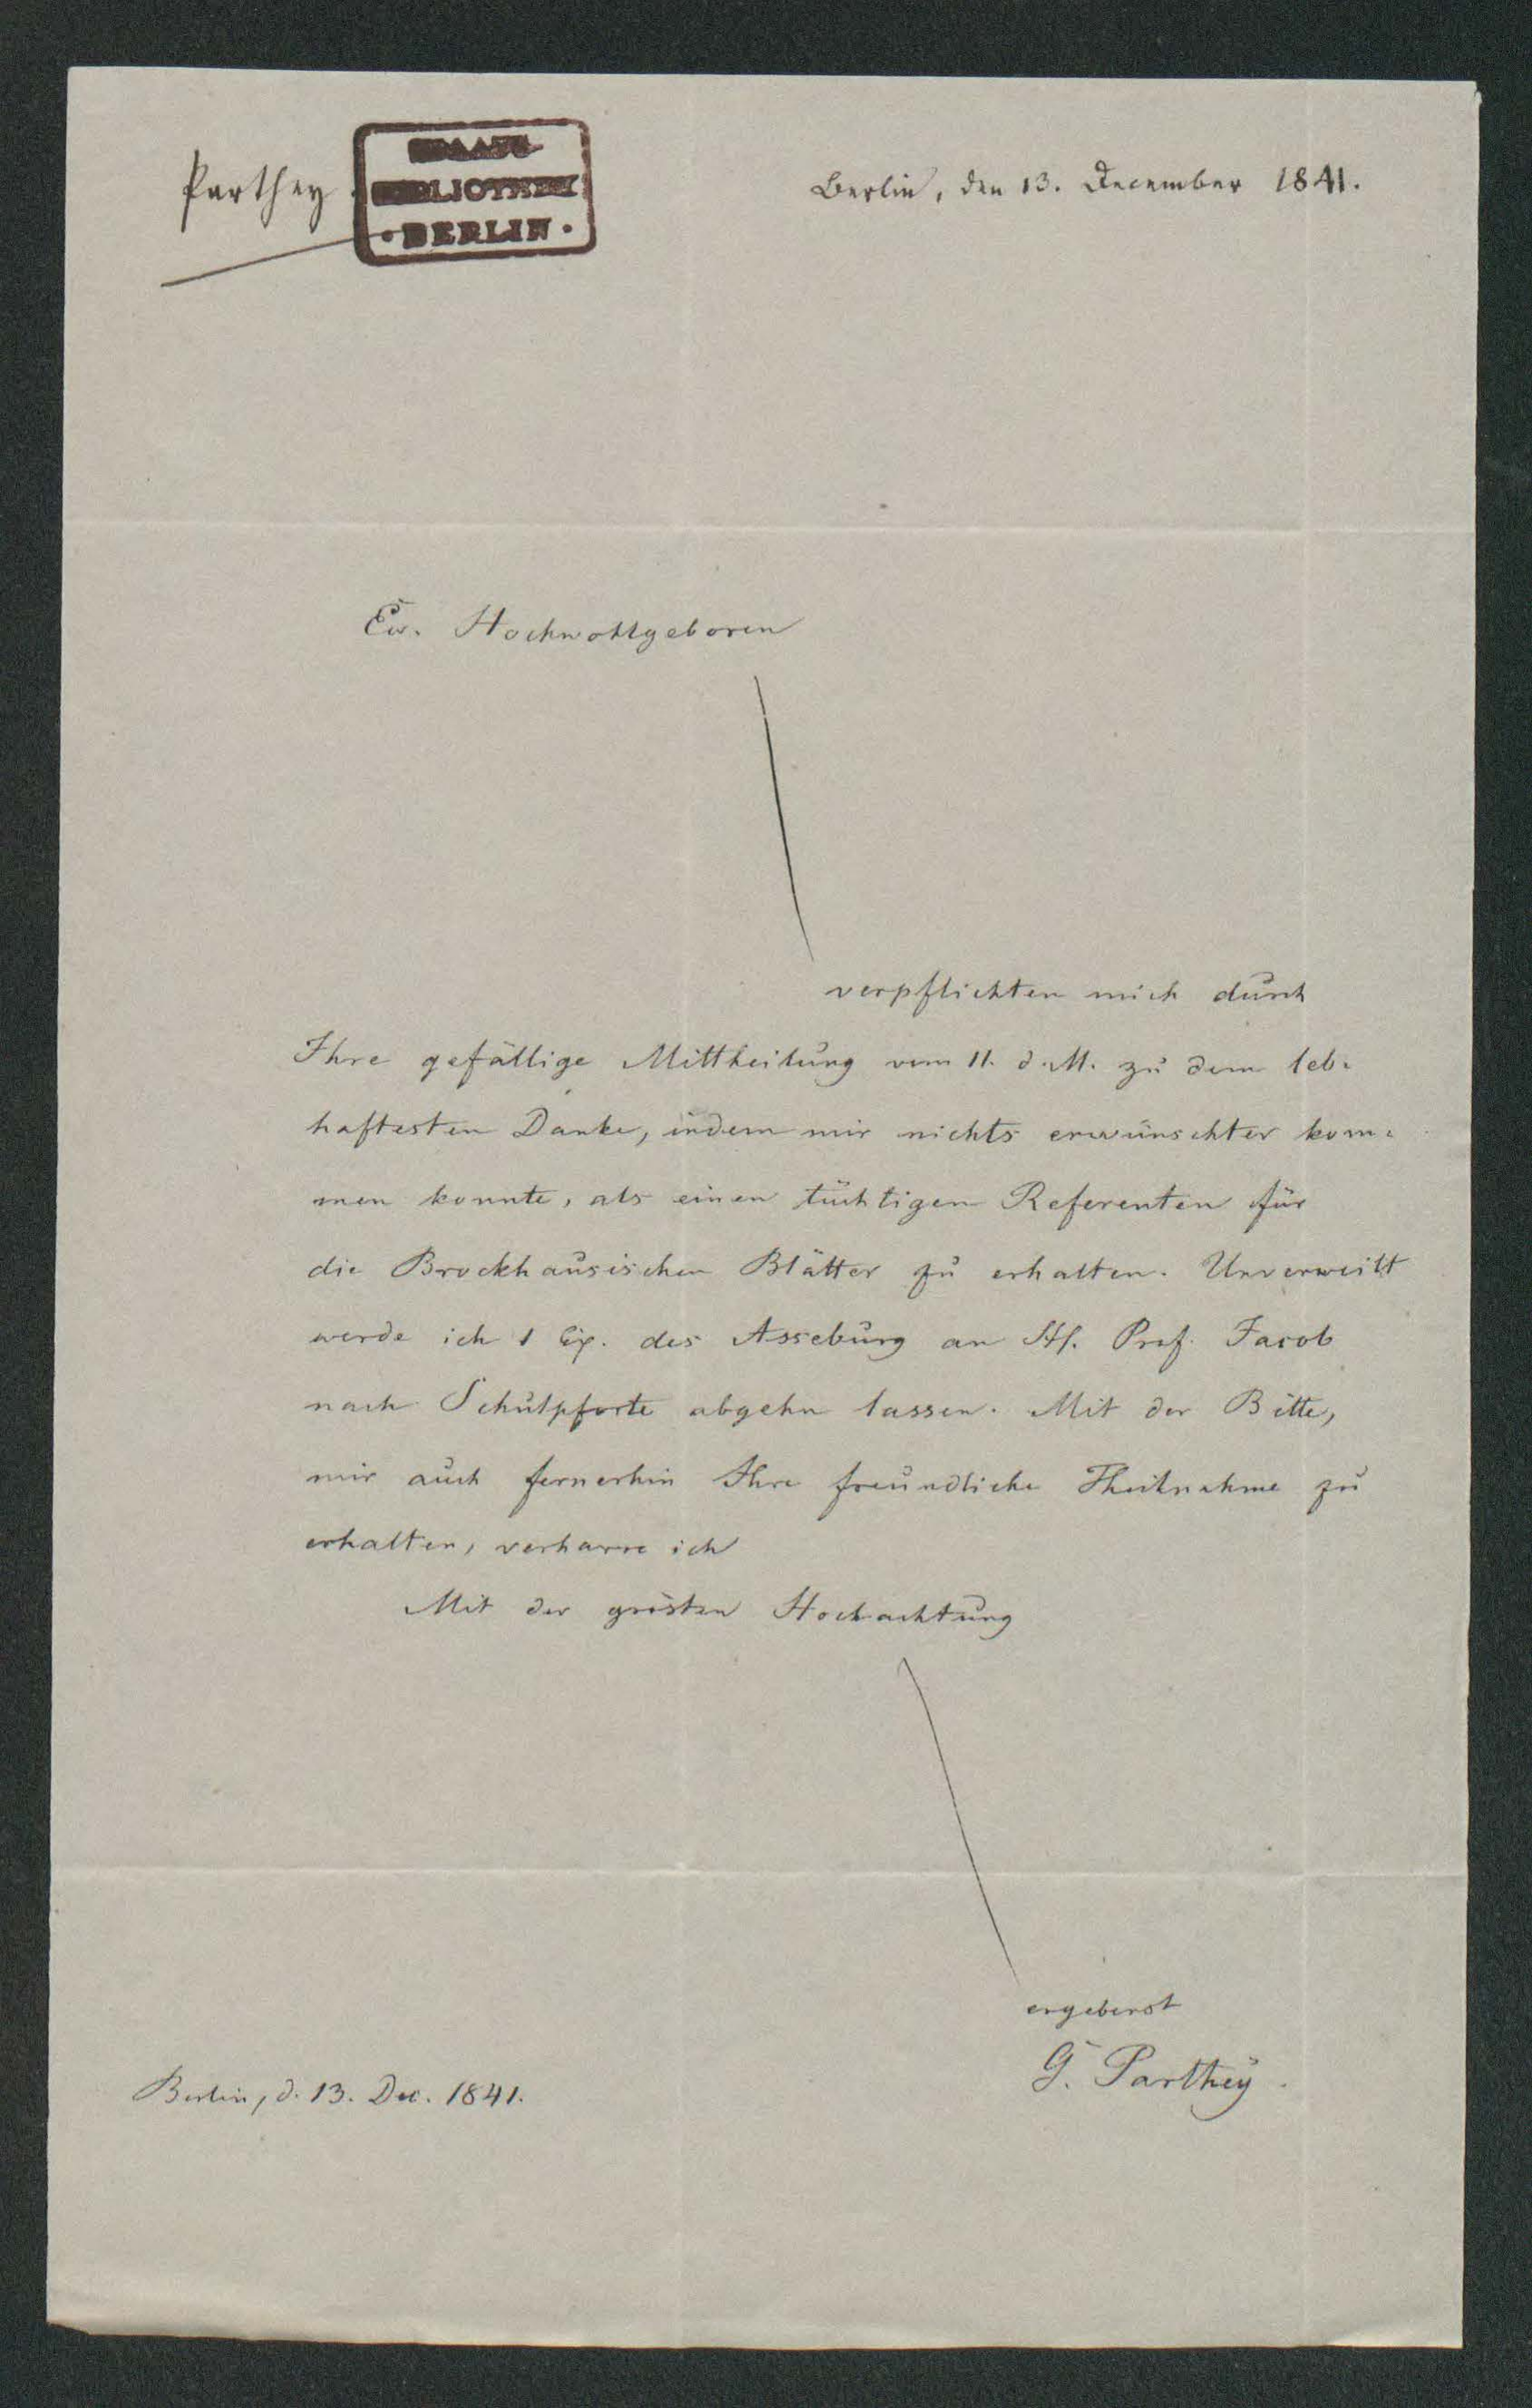 Parthey.
STAATS
BIBLIOTHEK
• BERLIN •
Berlin, den 13. December 1841.
Ew. Hochwohlgeboren
verpflichten mich durch
Ihre gefällige Mittheilung vom 11. d. M. zu dem leb-
haftesten Danke, indem mir nichts erwünschter kom-
men konnte, als einen tüchtigen Referenten für
die Brockhausischen Blätter zu erhalten. Unverweilt
werde ich 1 Ex. des Asseburg an Hr. Prof. Jacob
nach Schulpforte abgehn lassen. Mit der Bitte,
mir auch fernerhin Ihre freundliche Theilnahme zu
erhalten, verharre ich
Mit der grösten Hochachtung
ergebenst
G. Parthey.
Berlin, d. 13. Dec. 1841.